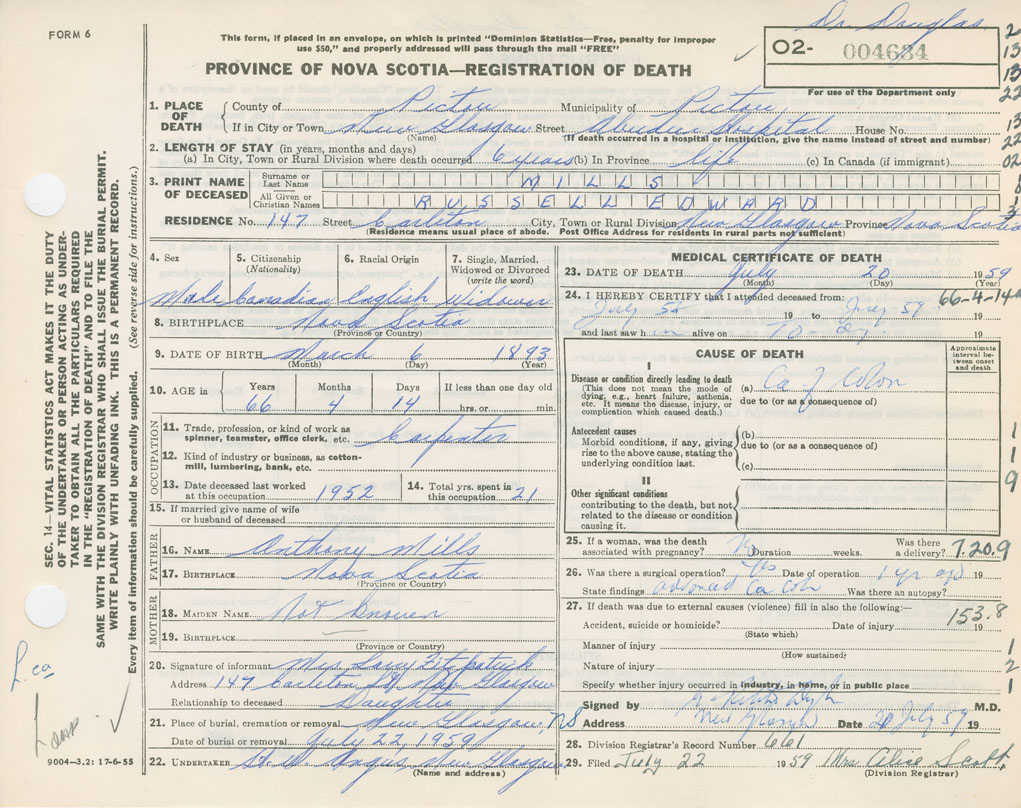 FORM 6
Dr. Douglas
This form, if placed in an envelope, on which is printed "Dominion Statistics—Free, penalty for improper
use $50," and properly addressed will pass through the mail "FREE"
O2- 004684
For use of the Department only
PROVINCE OF NOVA SCOTIA—REGISTRATION OF DEATH
1. PLACE OF DEATH County of Pictou Municipality of Pictou
If in City or Town New Glasgow Street Aberdeen Hospital House No.
(Name) (If death occurred in a hospital or institution, give the name instead of street and number)
2. LENGTH OF STAY (in years, months and days)
(a) In City, Town or Rural Division where death occurred 6 years (b) In Province life (c) In Canada (if immigrant)
3. PRINT NAME OF DECEASED
Surname or Last Name MILLS
All Given or Christian Names RUSSELL EDWARD
RESIDENCE No. 147 Street Carleton City, Town or Rural Division New Glasgow Province Nova Scotia
(Residence means usual place of abode. Post Office Address for residents in rural parts not sufficient)
4. Sex 5. Citizenship (Nationality) 6. Racial Origin 7. Single, Married, Widowed or Divorced (write the word)
Male Canadian English Widower
8. BIRTHPLACE Nova Scotia
(Province or Country)
9. DATE OF BIRTH March 6 1893
(Month) (Day) (Year)
10. AGE in Years Months Days If less than one day old
66 4 14 hrs. or min.
OCCUPATION
11. Trade, profession, or kind of work as spinner, teamster, office clerk, etc. Carpenter
12. Kind of industry or business, as cotton-mill, lumbering, bank, etc.
13. Date deceased last worked at this occupation 1952 14. Total yrs. spent in this occupation 21
15. If married give name of wife or husband of deceased
FATHER
16. NAME Anthony Mills
17. BIRTHPLACE Nova Scotia
(Province or Country)
MOTHER
18. MAIDEN NAME Not known
19. BIRTHPLACE
(Province or Country)
20. Signature of informant Mrs. Larry Fitzpatrick
Address 147 Carleton St, New Glasgow
Relationship to deceased Daughter
21. Place of burial, cremation or removal New Glasgow, NS
Date of burial or removal July 22, 1959
22. UNDERTAKER Angus, New Glasgow
(Name and address)
MEDICAL CERTIFICATE OF DEATH
23. DATE OF DEATH July 20 1959
(Month) (Day) (Year)
24. I HEREBY CERTIFY that I attended deceased from: 66-4-14
July 58 19 to July 59 19
and last saw h alive on 19
CAUSE OF DEATH
Approximate interval between onset and death
I
Disease or condition directly leading to death (a) Ca of Colon
(This does not mean the mode of dying, e.g., heart failure, asthenia, etc. It means the disease, injury, or complication which caused death.)
due to (or as a consequence of)
Antecedent causes
Morbid conditions, if any, giving rise to the above cause, stating the underlying condition last.
(b)
due to (or as a consequence of)
(c)
II
Other significant conditions
contributing to the death, but not related to the disease or condition causing it.
25. If a woman, was the death associated with pregnancy? Duration weeks. Was there a delivery? 7.20.9
26. Was there a surgical operation? Yes Date of operation 1 yr ago 19
State findings advanced Ca Colon Was there an autopsy?
27. If death was due to external causes (violence) fill in also the following:— 153.8
Accident, suicide or homicide? Date of injury 19
(State which)
Manner of injury
(How sustained)
Nature of injury
Specify whether injury occurred in industry, in home, or in public place
Signed by M.D.
Address New Glasgow Date 20 July 59 19
28. Division Registrar's Record Number 661
29. Filed July 22 1959 Mrs Alice Scott
(Division Registrar)
SEC. 14—VITAL STATISTICS ACT MAKES IT THE DUTY
OF THE UNDERTAKER OR PERSON ACTING AS UNDER-
TAKER TO OBTAIN ALL THE PARTICULARS REQUIRED
IN THE "REGISTRATION OF DEATH" AND TO FILE THE
SAME WITH THE DIVISION REGISTRAR WHO SHALL ISSUE THE BURIAL PERMIT.
WRITE PLAINLY WITH UNFADING INK. THIS IS A PERMANENT RECORD.
Every item of information should be carefully supplied. (See reverse side for instructions.)
9004—3,2: 17-6-55